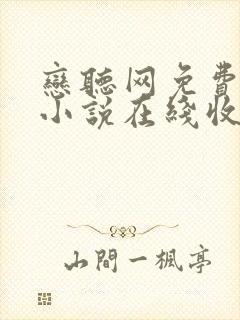 戀聽网免費
小说在綫收
山間一楓亭